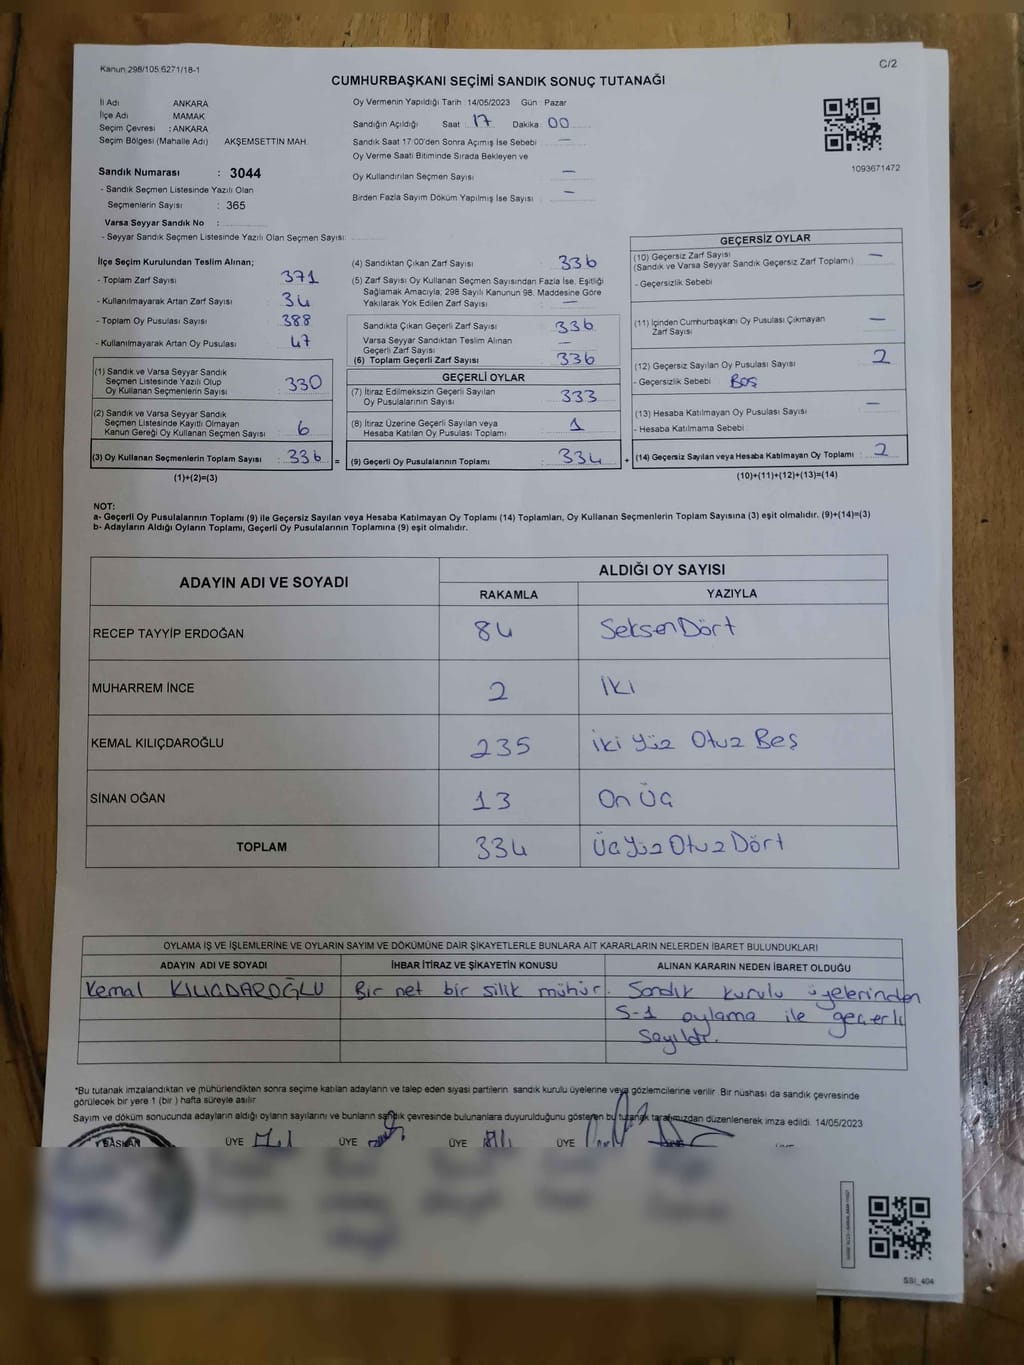 Kanun:298/105;6271/18-1
C/2
CUMHURBAŞKANI SEÇİMİ SANDIK SONUÇ TUTANAĞI
İl Adı ANKARA
İlçe Adı MAMAK
Seçim Çevresi : ANKARA
Seçim Bölgesi (Mahalle Adı) AKŞEMSETTİN MAH.
Sandık Numarası : 3044
- Sandık Seçmen Listesinde Yazılı Olan
Seçmenlerin Sayısı : 365
Varsa Seyyar Sandık No :
- Seyyar Sandık Seçmen Listesinde Yazılı Olan Seçmen Sayısı:
Oy Vermenin Yapıldığı Tarih : 14/05/2023 Gün : Pazar
Sandığın Açıldığı Saat : 17 Dakika : 00
Sandık Saat 17:00'den Sonra Açımış İse Sebebi : —
Oy Verme Saati Bitiminde Sırada Bekleyen ve
Oy Kullandırılan Seçmen Sayısı : —
Birden Fazla Sayım Döküm Yapılmış İse Sayısı : —
1093671472
İlçe Seçim Kurulundan Teslim Alınan;
- Toplam Zarf Sayısı : 371
- Kullanılmayarak Artan Zarf Sayısı : 34
- Toplam Oy Pusulası Sayısı : 388
- Kullanılmayarak Artan Oy Pusulası : 47
(1) Sandık ve Varsa Seyyar Sandık
Seçmen Listesinde Yazılı Olup
Oy Kullanan Seçmenlerin Sayısı : 330
(2) Sandık ve Varsa Seyyar Sandık
Seçmen Listesinde Kayıtlı Olmayan
Kanun Gereği Oy Kullanan Seçmen Sayısı : 6
(3) Oy Kullanan Seçmenlerin Toplam Sayısı : 336 =
(1)+(2)=(3)
(4) Sandıktan Çıkan Zarf Sayısı : 336
(5) Zarf Sayısı Oy Kullanan Seçmen Sayısından Fazla İse, Eşitliği
Sağlamak Amacıyla, 298 Sayılı Kanunun 98. Maddesine Göre
Yakılarak Yok Edilen Zarf Sayısı : —
Sandıkta Çıkan Geçerli Zarf Sayısı : 336
Varsa Seyyar Sandıktan Teslim Alınan
Geçerli Zarf Sayısı : —
(6) Toplam Geçerli Zarf Sayısı : 336
GEÇERLİ OYLAR
(7) İtiraz Edilmeksizin Geçerli Sayılan
Oy Pusulalarının Sayısı : 333
(8) İtiraz Üzerine Geçerli Sayılan veya
Hesaba Katılan Oy Pusulası Toplamı : 1
(9) Geçerli Oy Pusulalarının Toplamı : 334 +
GEÇERSİZ OYLAR
(10) Geçersiz Zarf Sayısı
(Sandık ve Varsa Seyyar Sandık Geçersiz Zarf Toplamı) : —
- Geçersizlik Sebebi :
(11) İçinden Cumhurbaşkanı Oy Pusulası Çıkmayan
Zarf Sayısı : —
(12) Geçersiz Sayılan Oy Pusulası Sayısı : 2
- Geçersizlik Sebebi : Boş
(13) Hesaba Katılmayan Oy Pusulası Sayısı : —
- Hesaba Katılmama Sebebi :
(14) Geçersiz Sayılan veya Hesaba Katılmayan Oy Toplamı : 2
(10)+(11)+(12)+(13)=(14)
NOT:
a- Geçerli Oy Pusulalarının Toplamı (9) ile Geçersiz Sayılan veya Hesaba Katılmayan Oy Toplamı (14) Toplamları, Oy Kullanan Seçmenlerin Toplam Sayısına (3) eşit olmalıdır. (9)+(14)=(3)
b- Adayların Aldığı Oyların Toplamı, Geçerli Oy Pusulalarının Toplamına (9) eşit olmalıdır.
ADAYIN ADI VE SOYADI ALDIĞI OY SAYISI
RAKAMLA YAZIYLA
RECEP TAYYİP ERDOĞAN 84 SeksenDört
MUHARREM İNCE 2 İki
KEMAL KILIÇDAROĞLU 235 İki Yüz Otuz Beş
SİNAN OĞAN 13 On Üç
TOPLAM 334 ÜçYüzOtuzDört
OYLAMA İŞ VE İŞLEMLERİNE VE OYLARIN SAYIM VE DÖKÜMÜNE DAİR ŞİKAYETLERLE BUNLARA AİT KARARLARIN NELERDEN İBARET BULUNDUKLARI
ADAYIN ADI VE SOYADI İHBAR İTİRAZ VE ŞİKAYETİN KONUSU ALINAN KARARIN NEDEN İBARET OLDUĞU
Kemal KILIÇDAROĞLU Bir net bir silik mühür. Sandık kurulu üyelerinden
5-1 oylama ile geçerli
Sayıldı.
*Bu tutanak imzalandıktan ve mühürlendikten sonra seçime katılan adayların ve talep eden siyasi partilerin, sandık kurulu üyelerine veya gözlemcilerine verilir. Bir nüshası da sandık çevresinde
görülecek bir yere 1 (bir ) hafta süreyle asılır.
Sayım ve döküm sonucunda adayların aldığı oyların sayılarını ve bunların sandık çevresinde bulunanlara duyurulduğunu gösteren bu tutanak tarafımızdan düzenlenerek imza edildi. 14/05/2023
BAŞKAN ÜYE ÜYE ÜYE ÜYE
SSI_404